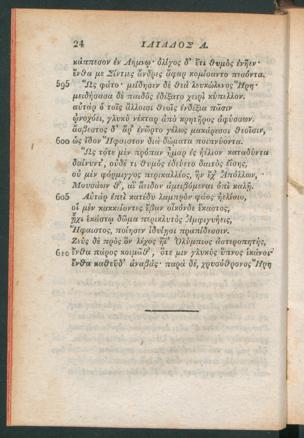 24 ΙΛΙΑΔΟΣ Α.
κάππεσον ἐν Λήμνῳ· ὀλίγος δ' ἔτι θυμὸς ἐνῆεν·
ἔνθα με Σίντιες ἄνδρες ἄφαρ κομίσαντο πεσόντα.
595 Ὣς φάτο· μείδησεν δὲ θεὰ λευκώλενος Ἥρη·
μειδήσασα δὲ παιδὸς ἐδέξατο χειρὶ κύπελλον.
αὐτὰρ ὁ τοῖς ἄλλοισι θεοῖς ἐνδέξια πᾶσιν
ᾠνοχόει, γλυκὺ νέκταρ ἀπὸ κρητῆρος ἀφύσσων.
ἄσβεστος δ' ἄρ' ἐνῶρτο γέλως μακάρεσσι θεοῖσιν,
600 ὡς ἴδον Ἥφαιστον διὰ δώματα ποιπνύοντα.
Ὣς τότε μὲν πρόπαν ἦμαρ ἐς ἠέλιον καταδύντα
δαίνυντ', οὐδέ τι θυμὸς ἐδεύετο δαιτὸς ἐΐσης,
οὐ μὲν φόρμιγγος περικαλλέος, ἣν ἔχ' Ἀπόλλων,
Μουσάων θ', αἳ ἄειδον ἀμειβόμεναι ὀπὶ καλῇ.
605 Αὐτὰρ ἐπεὶ κατέδυ λαμπρὸν φάος ἠελίοιο,
οἱ μὲν κακκείοντες ἔβαν οἶκόνδε ἕκαστος,
ἧχι ἑκάστῳ δῶμα περικλυτὸς Ἀμφιγυήεις,
Ἥφαιστος, ποίησεν ἰδυίῃσι πραπίδεσσιν.
Ζεὺς δὲ πρὸς ὃν λέχος ἤϊ' Ὀλύμπιος ἀστεροπητής,
610 ἔνθα πάρος κοιμᾶθ', ὅτε μιν γλυκὺς ὕπνος ἱκάνοι·
ἔνθα καθεῦδ' ἀναβάς· παρὰ δέ, χρυσόθρονος Ἥρη